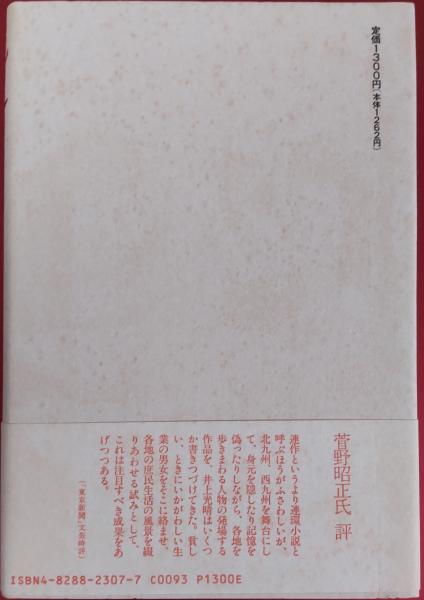 定価1300円(本体1262円)
菅野昭正氏 評
連作というより連環小説と
呼ぶほうがふさわしいが、
北九州、西九州を舞台にし
て、身元を隠したり記憶を
偽ったりしながら、各地を
歩きまわる人物の登場する
作品を、井上光晴はいくつ
か書きつづけてきた。貧し
い、ときにいかがわしい生
業の男女をそこに絡ませ、
各地の庶民生活の風景を綴
りあわせる試みとして、
これは注目すべき成果をあ
げつつある。
(「東京新聞」文芸時評)
ISBN4-8288-2307-7 C0093 P1300E